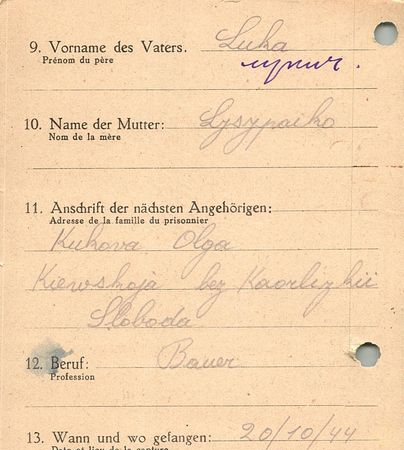 9. Vorname des Vaters. Luka
Prénom du père
10. Name der Mutter: Lysypaiko
Nom de la mère
11. Anschrift der nächsten Angehörigen:
Adresse de la famille du prisonnier
Kukova Olga
Kiewskaja
Sloboda
12. Beruf: Bauer
Profession
13. Wann und wo gefangen: 20/10/44
Date et lieu de la capture